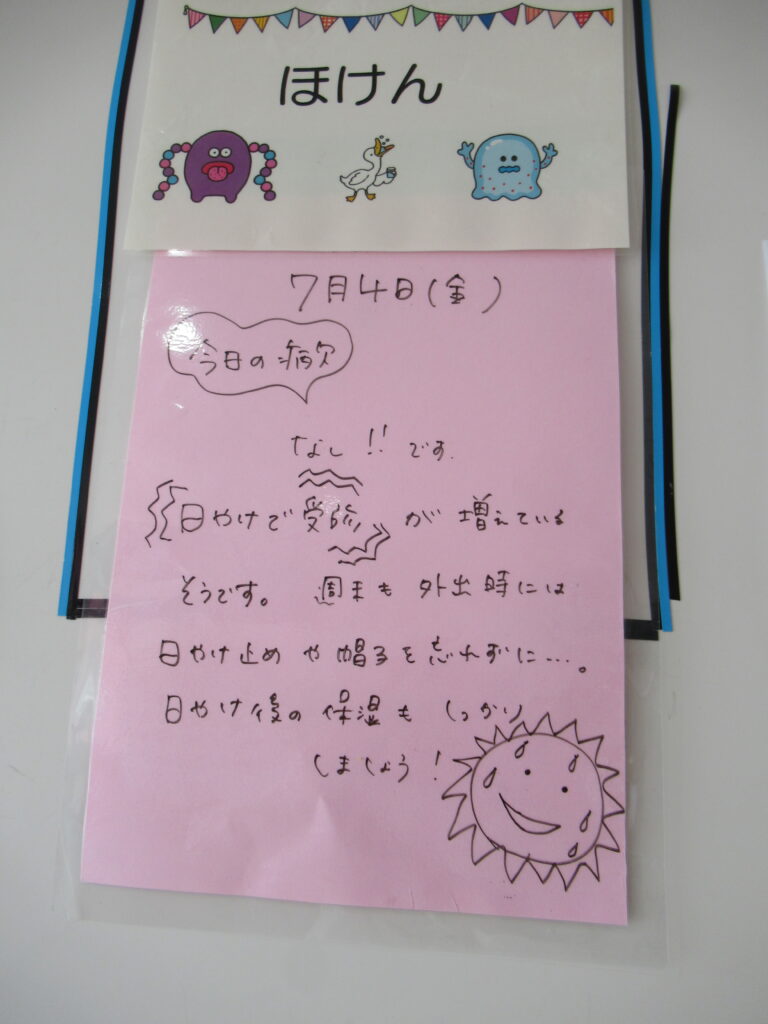 ほけん
7月4日(金)
今日の病欠
なし!!です.
日やけで受診が増えている
そうです。 週末も外出時には
日やけ止めや帽子を忘れずに…。
日やけ後の保湿もしっかり
しましょう!